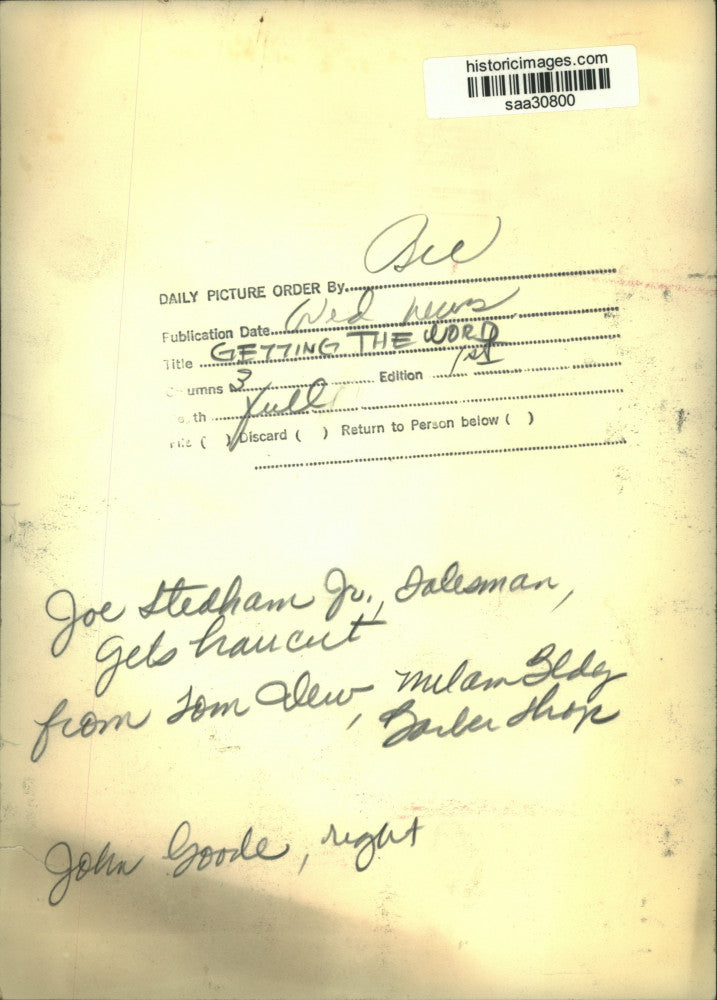 historicimages.com
saa30800
DAILY PICTURE ORDER By
Publication Date Wed news
Title GETTING THE WORD
umns 3 Edition 1st
th full
( ) Discard ( ) Return to Person below ( )
Joe Stedham Jr., Salesman,
Gets haircut
from Tom Dew, Milam Bldg
Barber Shop
John Goode, right